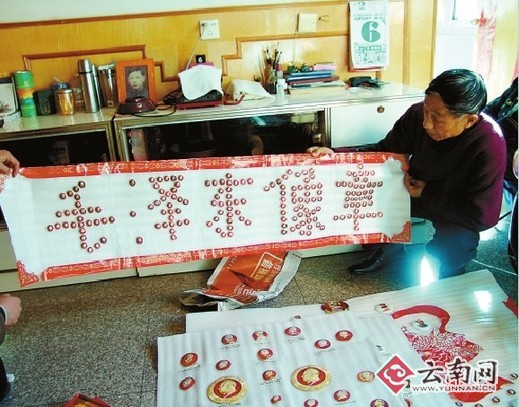 6
6
毛泽东像章
云南网
WWW.YUNNAN.CN